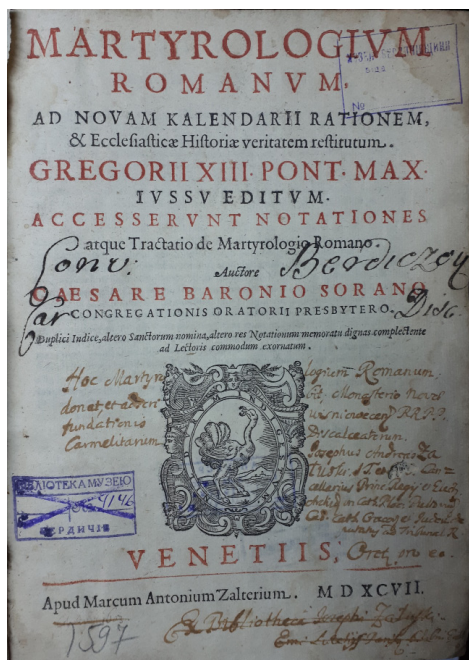 MARTYROLOGIVM
ROMANVM,
AD NOVAM KALENDARII RATIONEM,
& Ecclesiasticæ Historiæ veritatem restitutum.
GREGORII XIII. PONT. MAX.
IVSSV EDITVM.
ACCESSERVNT NOTATIONES
atque Tractatio de Martyrologio Romano.
Auctore
Conv: Berdiczov
CAESARE BARONIO SORANO
Car Disc
CONGREGATIONIS ORATORII PRESBYTERO.
Duplici Indice, altero Sanctorum nomina, altero res Notationum memoratu dignas complectente
ad Lectoris commodum exornatum.
Hoc Martyro logium Romanum
donat et
fundationis Monasterio
Carmelitarum Discalceatorum.
Josephus Andreas Za
БІБЛІОТЕКА МУЗЕЮ
4146
БЕРДИЧІВ
VENETIIS,
Apud Marcum Antonium Zalterium. M D XCVII.
1597
Ex Bibliotheca Josephi Załuski